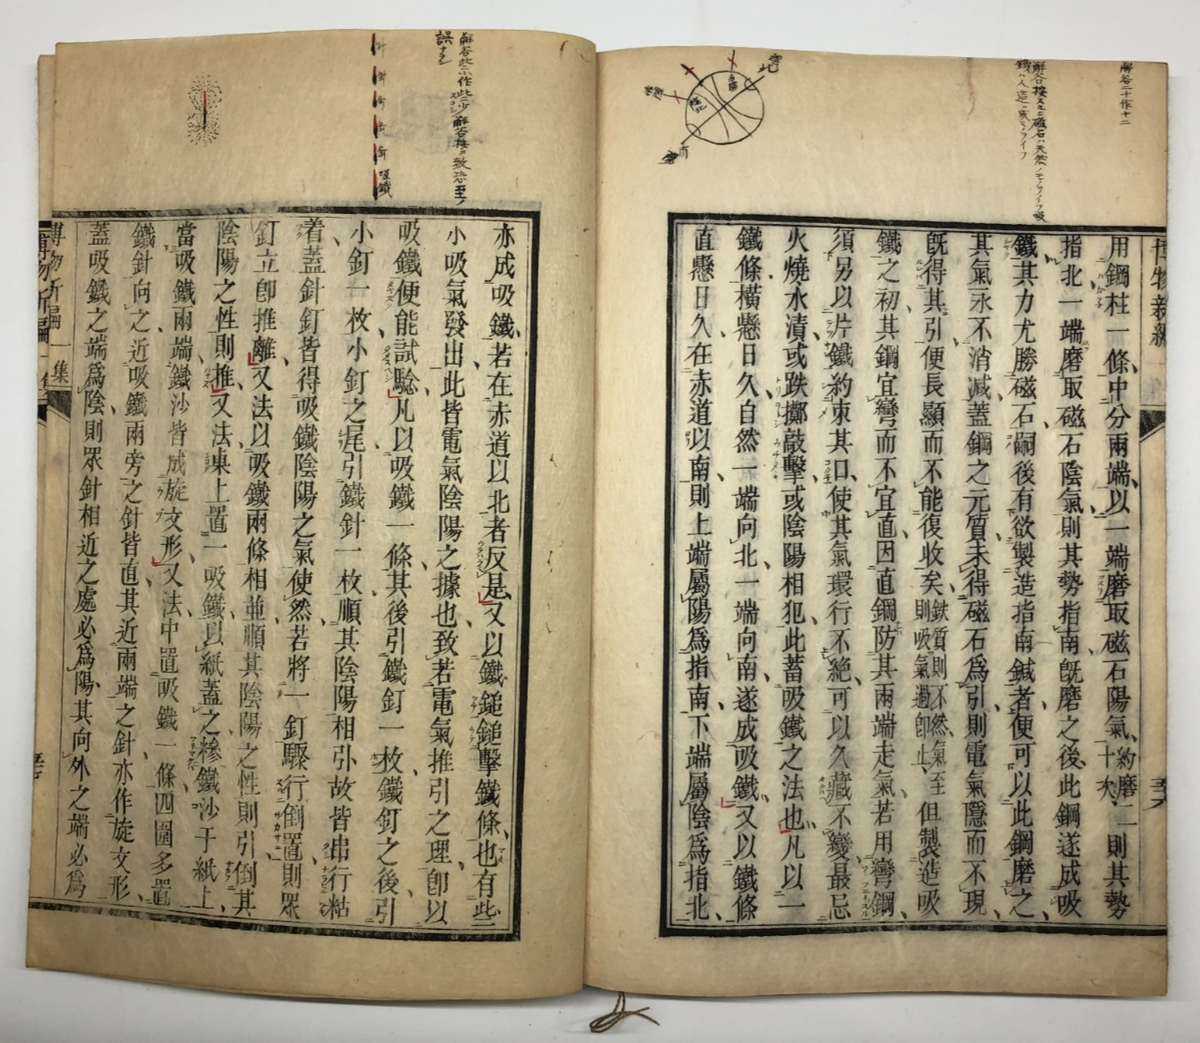 博物新編
用鋼柱一條、中分兩端、以一端磨取磁石陽氣、約磨二十次則其勢
指北一端磨取磁石陰氣、則其勢指南、旣磨之後、此鋼遂成吸
鐵其力尤勝磁石、嗣後有欲製造指南鍼者、便可以此鋼磨之、
其氣永不消減、蓋鋼之元質、未得磁石爲引、則電氣隱而不現、
旣得其引、便長顯而不能復收矣、鉄質則不然、氣至則吸、氣過卽止、但製造吸
鐵之初、其鋼宜彎而不宜直、因直鋼防其兩端走氣、若用彎鋼、
須另以片鐵約束其口、使其氣環行不絶、可以久藏不變、最忌
火燒水漬、或跌擲敲擊、或陰陽相犯、此蓄吸鐵之法也、凡以一
鐵條橫懸日久、自然一端向北、一端向南、遂成吸鐵、又以鐵條
直懸日久、在赤道以南、則上端屬陽爲指南、下端屬陰爲指北、
亦成吸鐵、若在赤道以北者反是、又以鐵鎚鎚擊鐵條、也有些
小吸氣發出、此皆電氣陰陽之據也、致若電氣推引之理、卽以
吸鐵便能試驗、凡以吸鐵一條、其後引鐵釘一枚、鐵釘之後、引
小釘一枚、小釘之尾、引鐵針一枚、順其陰陽相引、故皆串行粘
着、蓋針釘皆得吸鐵陰陽之氣使然、若將一釘驟行倒置、則眾
釘立卽推離、又法以吸鐵兩條相並、順其陰陽之性則引、倒其
陰陽之性則推、又法桌上置一吸鐵、以紙蓋之、糝鐵沙于紙上、
當吸鐵兩端、鐵沙皆成旋文形、又法中置吸鐵一條、四圍多置
鐵針向之、近吸鐵兩旁之針皆直、其近兩端之針亦作旋文形、
蓋吸鐵之端爲陰、則眾針相近之處必爲陽、其向外之端必爲
博物新編一集